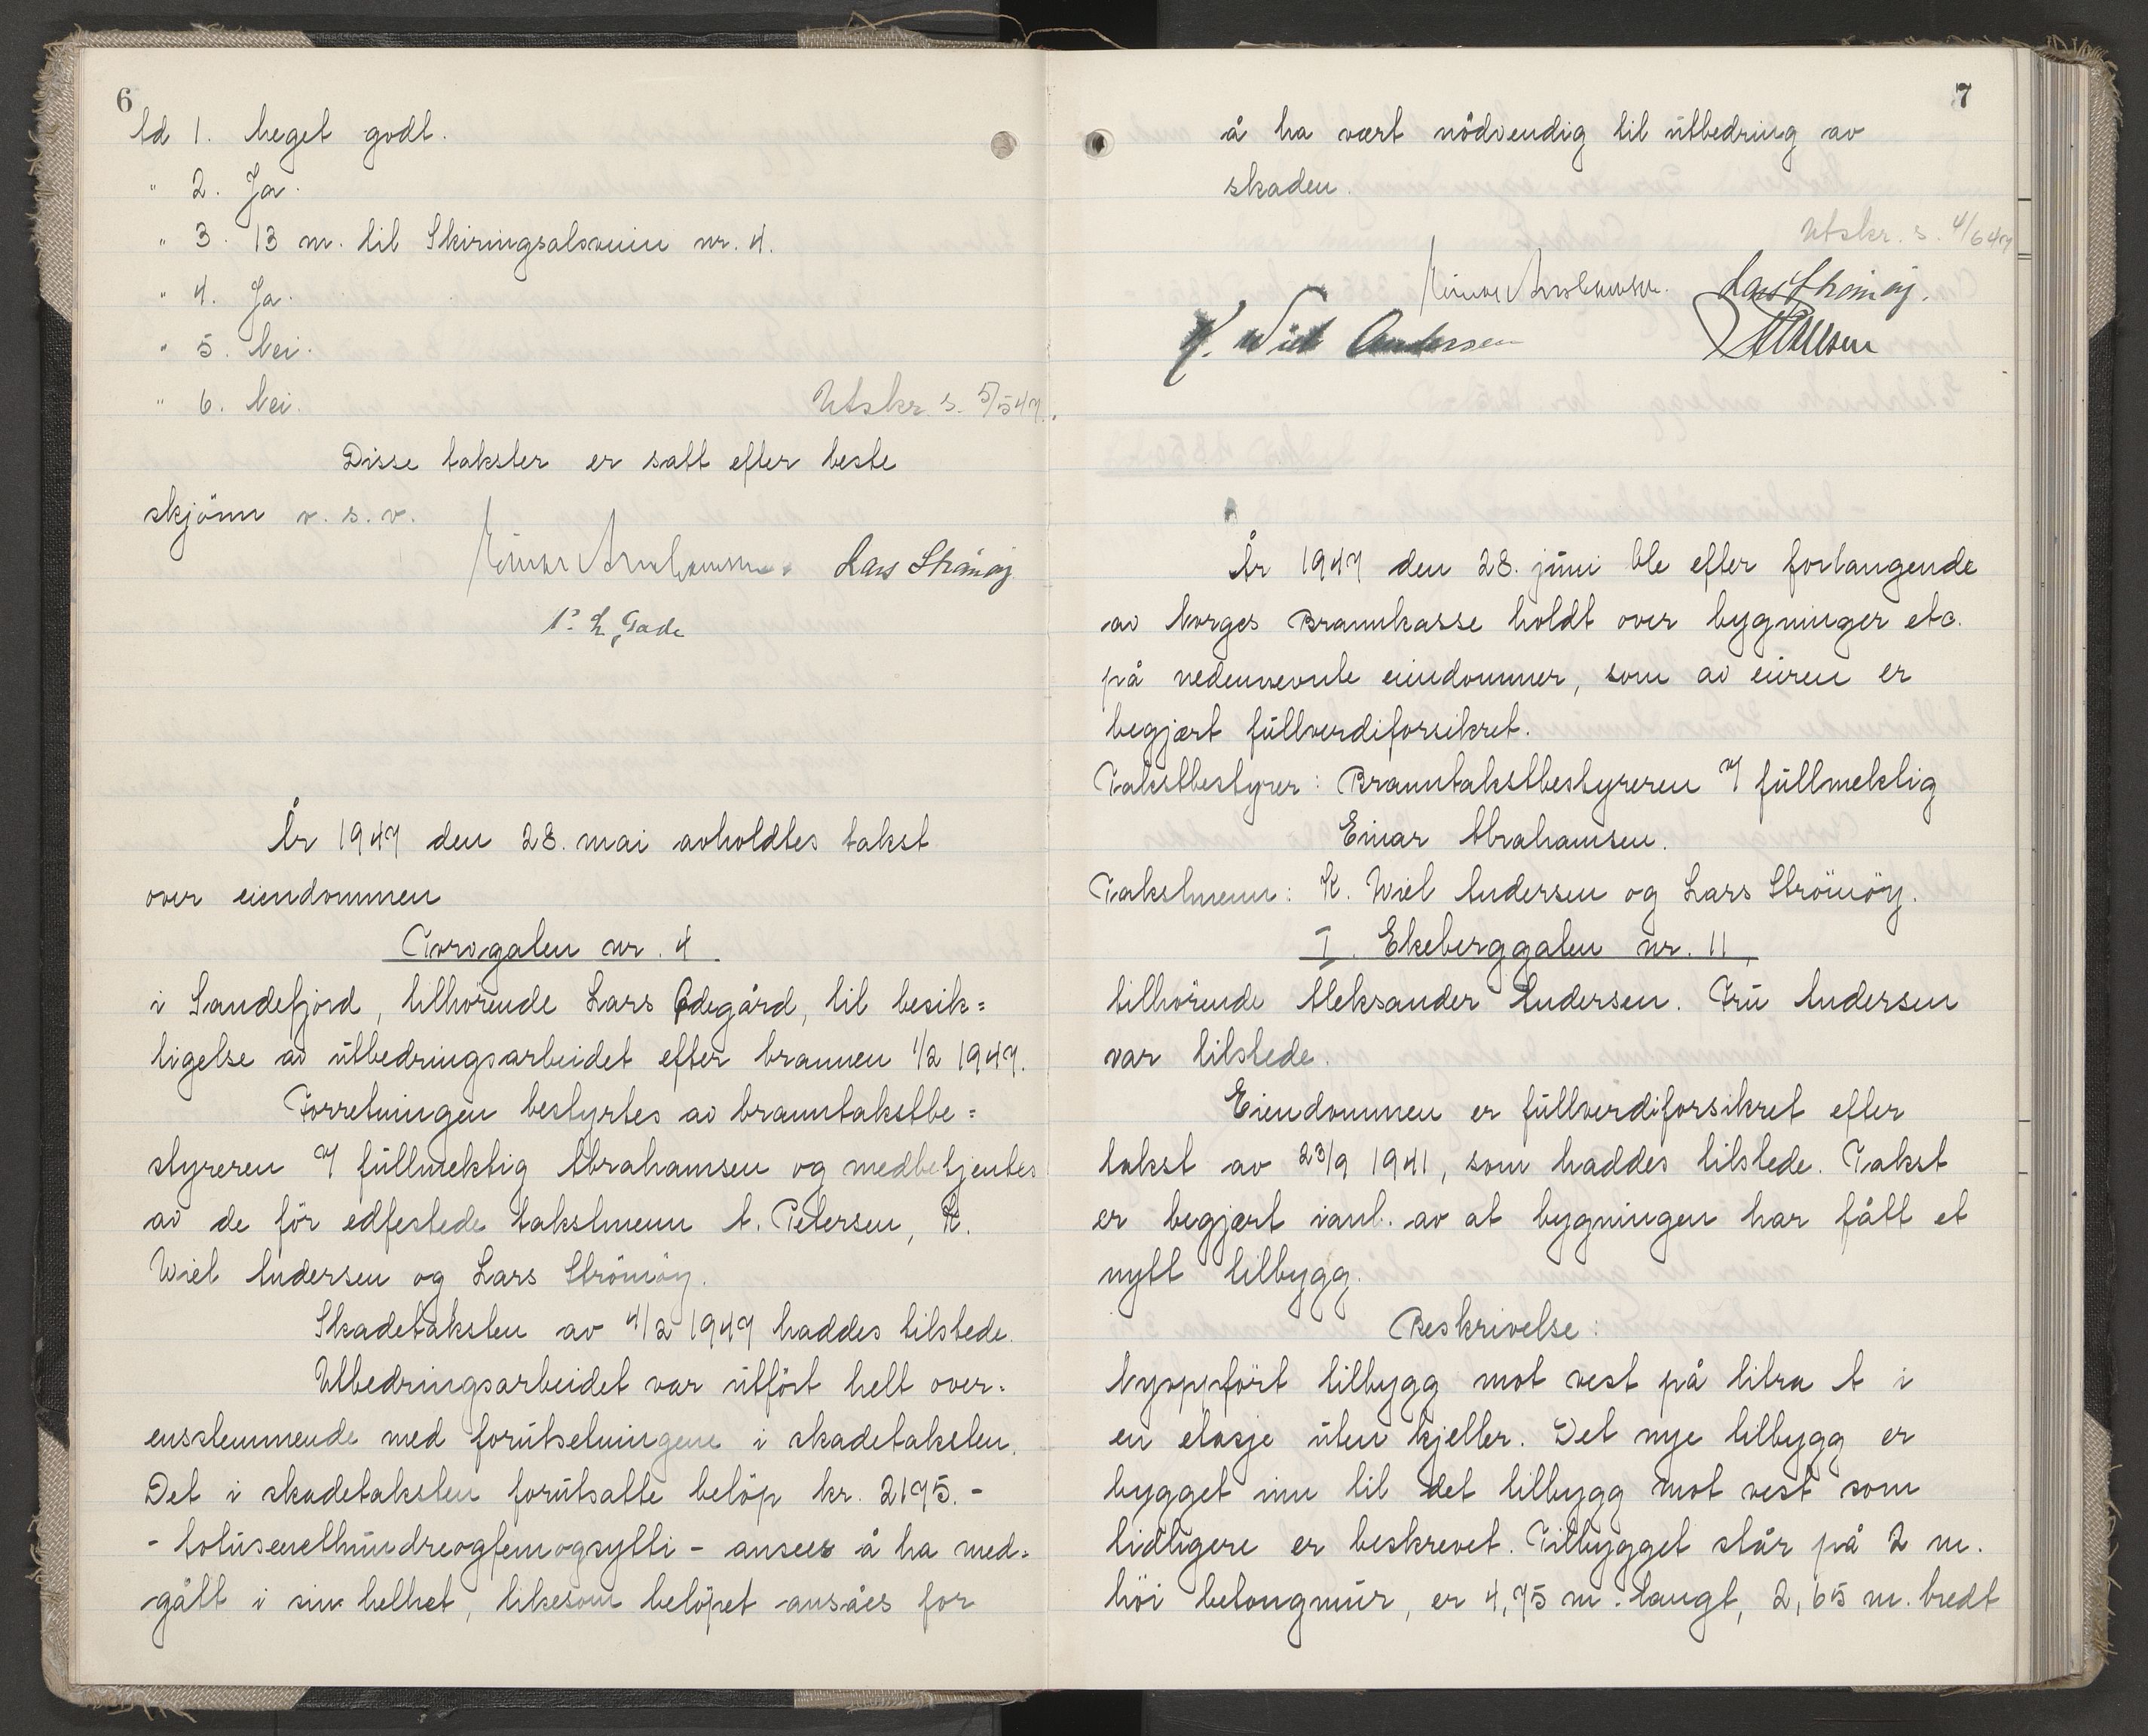 6
Ad 1. Meget godt.
" 2. Ja.
" 3. 13 m. til Skiringsalsveien nr. 4.
" 4. Ja.
" 5. Nei.
" 6. Nei.
Utskr. s. 5/5 47.
Disse takster er satt efter beste
skjönn o. s. v.
Einar Abrahamsen. Lars Strömöy
P. L. Gade
År 1947 den 28. mai avholdtes takst
over eiendommen
Torvgaten nr. 4
i Sandefjord, tilhörende Lars Ödegård, til besik=
tigelse av utbedringsarbeidet efter brannen 1/2 1947.
Forretningen bestyrtes av branntakstbe=
styreren v/ fullmektig Abrahamsen og medbetjentes
av de för edfestede takstmenn A. Petersen, K.
Wiel Andersen og Lars Strömöy.
Skadetaksten av 4/2 1947 haddes tilstede.
Utbedringsarbeidet var utfört helt over=
ensstemmende med forutsetningene i skadetaksten.
Det i skadetaksten forutsatte belöp kr. 2175.-
- totusenetthundreogfemogsytti - ansees å ha med=
gått i sin helhet, likesom belöpet ansåes for
7
å ha vært nödvendig til utbedring av
skaden.
Utskr. s. 4/6 47
Einar Abrahamsen. Lars Strömöy.
K. Wiel Andersen
År 1947 den 28. juni ble efter forlangende
av Norges Brannkasse holdt over bygninger etc.
på nedennevnte eiendommer, som av eieren er
begjært fullverdiforsikret.
Takstbestyrer: Branntakstbestyreren v/ fullmektig
Einar Abrahamsen.
Takstmenn: K. Wiel Andersen og Lars Strömöy.
I. Ekeberggaten nr. 11,
tilhörende Aleksander Andersen. Fru Andersen
var tilstede.
Eiendommen er fullverdiforsikret efter
takst av 23/9 1941, som haddes tilstede. Takst
er begjært ianl. av at bygningen har fått et
nytt tilbygg.
Beskrivelse:
Nyoppfört tilbygg mot vest på litra A i
en etasje uten kjeller. Det nye tilbygg er
bygget inn til det tilbygg mot vest som
tidligere er beskrevet. Tilbygget står på 2 m.
höi betongmur, er 4,75 m. langt, 2,65 m. bredt